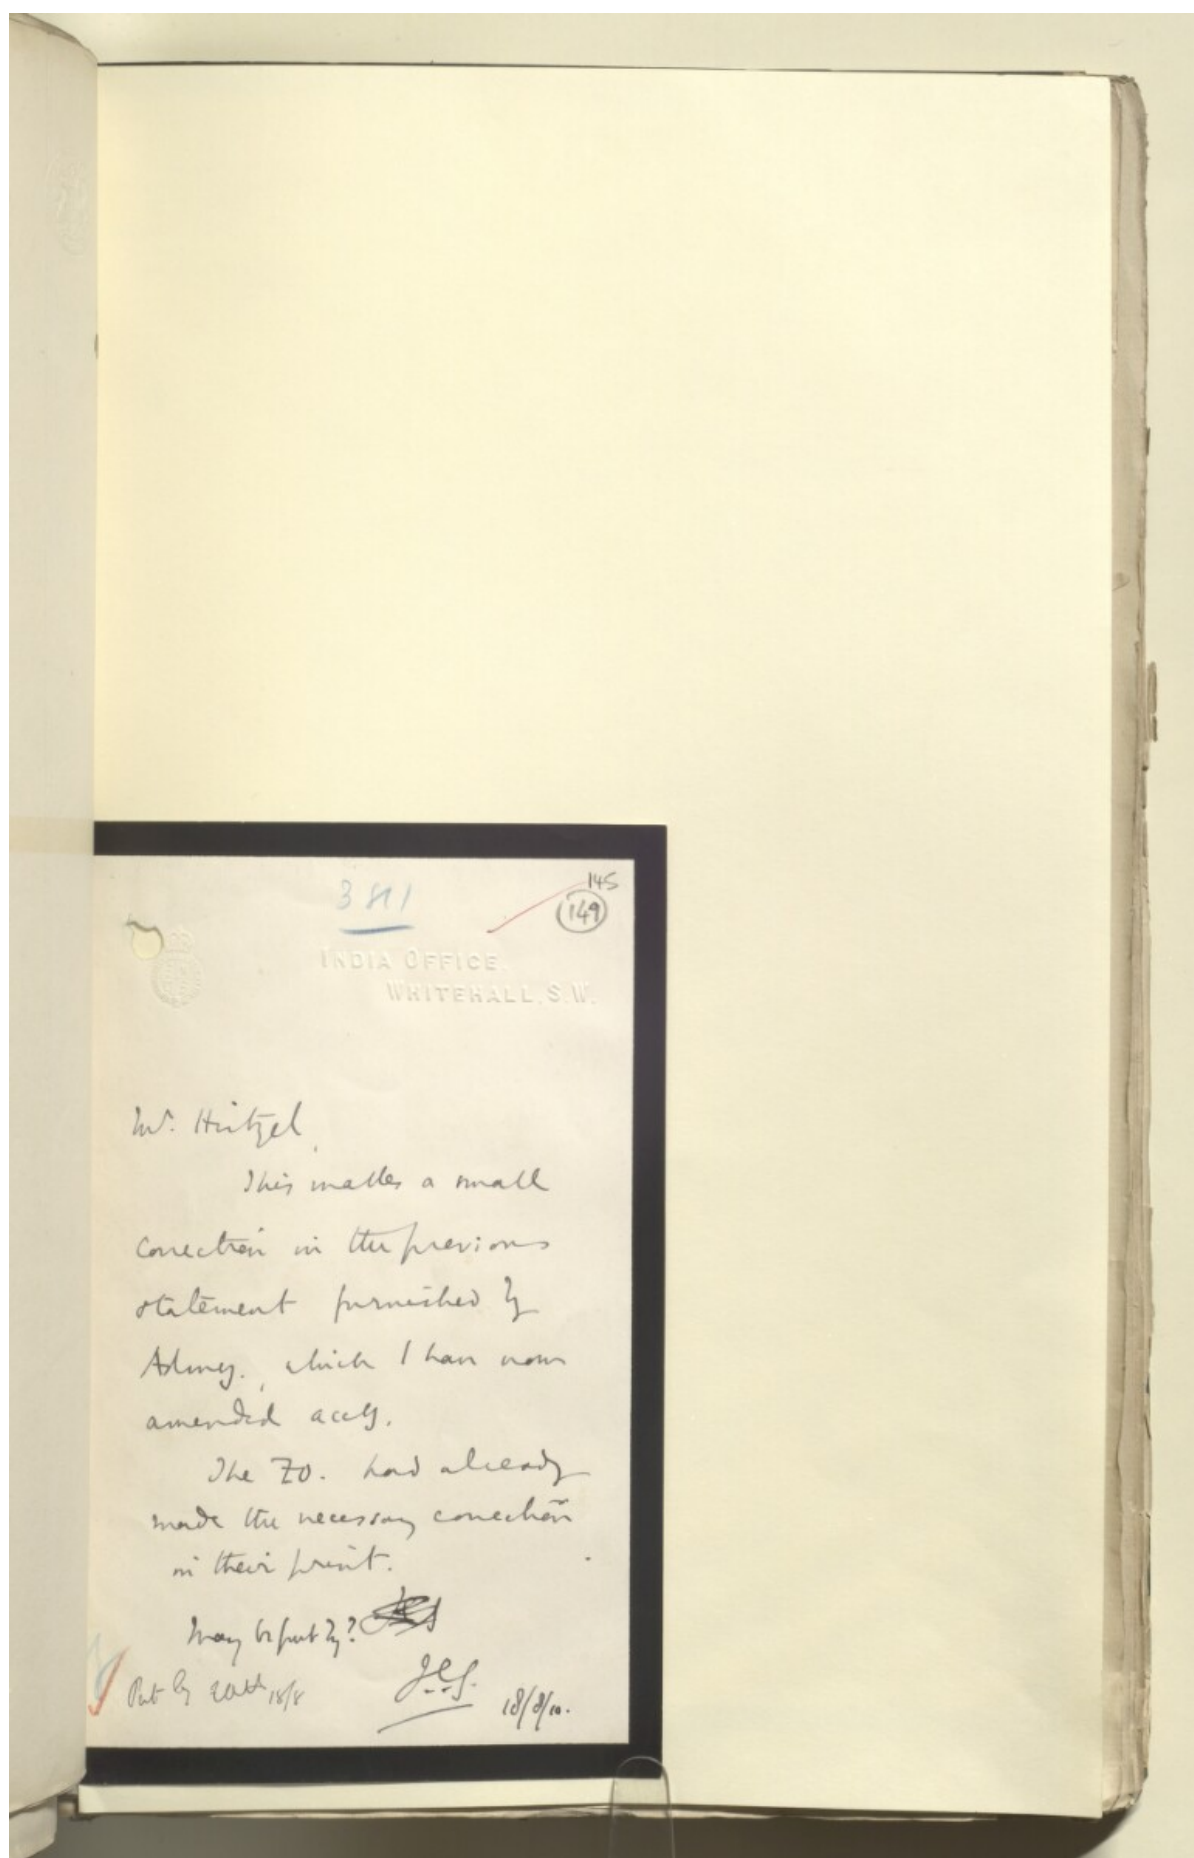 3811
145
149
INDIA OFFICE.
WHITEHALL. S.W.
Mr. Hirtzel,
This makes a small
correction in the previous
statement furnished by
Admy., which I have now
amended accly.
The F.O. had already
made the necessary correction
in their print.
May be put by?
Put by 18/8
J.E.S. 18/8/10.